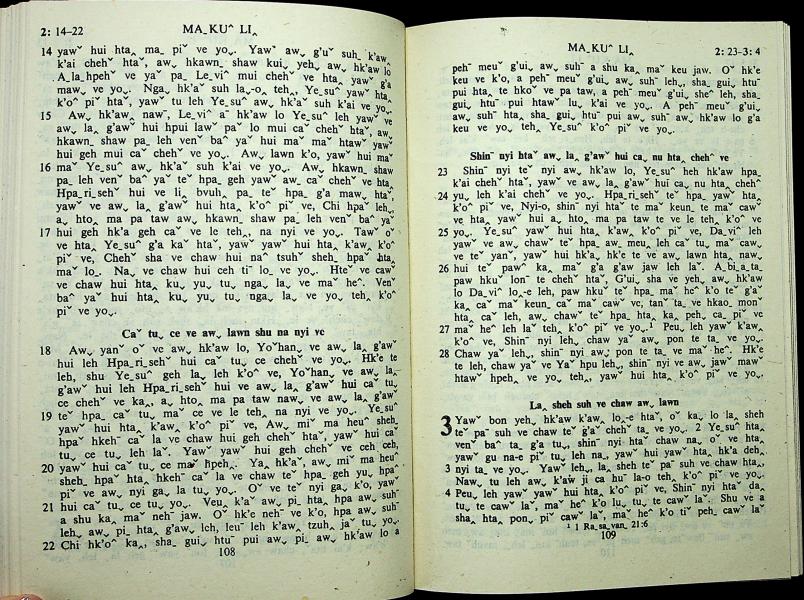 2: 14–22
MA_ KUˆ LI‸
14 yawˇ hui hta‸ ma_ piˇ ve yoˬ. Yawˇ awˬ g'uˇ suh_ k'awˬ
k'ai chehˇ htaˇ, awˬ hkawn_ shaw kuiˬ yehˬ awˬ hk'aw lo
A_la_hpehˇ ve yaˇ pa_ Le_viˆ mui cheˇ ve hta‸ yawˇ g'a
mawˬ ve yoˬ. Nga_ hk'aˇ suh la_-o‸ teh‸, Ye_suˆ yawˇ hta‸
k'oˆ piˇ htaˇ, yawˇ tu leh Ye_suˆ awˬ hk'aˇ suh k'ai ve yoˬ.
15 Awˬ hk'a‸ nawˇ, Le_viˆ aˇ hk'aw lo Ye_suˆ leh yawˇ ve
awˬ la‸ g'awˇ hui hpui lawˇ paˇ lo mui caˇ chehˇ htaˇ, awˬ
hkawn_ shaw pa_ leh venˇ baˆ yaˇ hui maˇ maˇ htawˇ yawˇ
hui geh mui caˇ chehˇ ve yoˬ. Awˬ lawn k'o, yawˇ hui maˇ
16 maˇ Ye_suˆ awˬ hk'aˇ suh k'ai ve yoˬ. Awˬ hkawn_ shaw
pa_ leh venˇ baˆ yaˇ teˇ hpa_ geh yaw awˬ caˇ chehˇ ve hta‸
Hpa_ri_sehˇ hui ve li‸ bvuhˬ pa_ teˇ hpa_ g'a mawˬ htaˇ,
yawˇ ve awˬ la‸ g'awˇ hui hta‸ k'oˆ piˇ ve, Chi hpaˇ leh‸
a‸ hto‸ ma pa taw awˬ hkawn_ shaw pa_ leh venˇ baˆ yaˇ
17 hui geh hk'a geh caˇ ve le teh‸ na nyi ve yoˬ. Tawˇ oˇ
ve hta‸ Ye_suˆ g'a kaˇ htaˇ, yawˇ yawˇ hui hta‸ k'aw‸ k'oˆ
piˇ ve, Chehˇ sha ve chaw hui naˆ tsuhˇ sheh_ hpaˇ hta‸
maˇ lo_. Na‸ ve chaw hui ceh tiˇ lo_ ve yoˬ. Hteˇ ve cawˇ
ve chaw hui hta‸ ku‸ yuˬ tu_ nga_ la‸ ve maˇ heˇ. Venˇ
baˆ yaˇ hui hta‸ ku‸ yuˬ tu_ nga_ la‸ ve yoˬ teh‸ k'oˆ
piˇ ve yoˬ.
Caˇ tuˬ ce ve awˬ lawn shu na nyi ve
18 Awˬ yanˇ oˇ ve awˬ hk'aw lo, Yoˇhanˬ ve awˬ la‸ g'awˇ
hui leh Hpa_ri_sehˇ hui caˇ tuˬ ce chehˇ ve yoˬ. Hk'e te
leh, shu Ye_suˆ geh la‸ leh k'oˆ ve, Yoˇhanˬ ve awˬ la‸
g'awˇ hui leh Hpa_ri_sehˇ hui ve awˬ la‸ g'awˇ hui caˇ tuˬ
ce chehˇ ve ka‸, a‸ hto‸ ma pa taw nawˬ ve awˬ la‸ g'awˇ
19 teˇ hpa_ caˇ tuˬ maˇ ce ve le teh‸ na nyi ve yoˬ. Ye_suˆ
yawˇ hui hta‸ k'aw‸ k'oˆ piˇ ve, Awˬ miˇ maˇ heuˆ sheh_
hpaˇ hkehˇ caˇ la ve chaw hui geh chehˇ htaˇ, yawˇ hui caˇ
tuˬ ce tuˬ leh laˇ. Yawˇ yawˇ hui geh chehˇ ve ceh ceh,
20 yawˇ hui caˇ tuˬ ce maˇ hpehˬ. Ya‸ hk'aˇ, awˬ miˇ ma heuˇ
sheh_ hpaˇ hta‸ hkehˇ caˇ la ve chaw teˇ hpa_ geh yuˬ hpaˇ
piˇ ve awˬ nyi ga‸ la tuˬ yoˬ. Oˇ ve teˇ nyi ga‸ k'o, yawˇ
21 hui caˇ tuˬ ce tuˬ yoˬ. Veuˬ k'aˇ awˬ pi_ hta‸ hpa awˬ suhˇ
a shu ka‸ maˇ nehˇ jaw. Oˇ hk'e nehˇ ve k'o, hpa awˬ suhˇ
leh‸ awˬ pi_ hta‸ g'awˬ leh, leuˇ leh k'aw‸ tzuh‸ jaˇ tuˬ yoˬ.
22 Chi hk'oˆ ka‸, sha_ guiˬ htuˇ pui awˬ pi_ awˬ hk'aw lo a
108
MA_ KUˆ LI‸
2: 23–3: 4
pehˇ meuˇ g'uiˬ awˬ suhˇ a shu ka‸ maˇ keu jaw. Oˇ hk'e
keu ve k'o, a pehˇ meuˇ g'uiˬ awˬ suhˇ leh‸, sha_ guiˬ htuˇ
pui hta‸ te hkoˇ ve pa taw, a pehˇ meuˇ g'uiˬ sheˆ leh, sha_
guiˬ htuˇ pui htawˇ luˬ k'ai ve yoˬ. A pehˇ meuˇ g'uiˬ
awˬ suhˇ hta‸ sha_ guiˬ htuˇ pui awˬ suhˇ awˬ hk'aw lo g'a
keu ve yoˬ teh‸ Ye_suˆ k'oˆ piˇ ve yoˬ.
Shinˇ nyi htaˇ awˬ la‸ g'awˇ hui ca‸ nu hta‸ chehˆ ve
23 Shinˇ nyi teˇ nyi awˬ hk'aw lo, Ye_suˆ heh hk'aw hpa_
k'ai chehˇ htaˇ, yawˇ ve awˬ la‸ g'awˇ hui ca‸ nu hta‸ chehˆ
24 yuˬ leh k'ai chehˇ ve yoˬ. Hpa_ri_sehˇ teˇ hpa_ yawˇ hta‸
k'oˆ piˇ ve, Nyi-o, shinˇ nyi htaˇ te maˇ keun_ te maˇ cawˬ
ve hta‸ yawˇ hui a‸ hto‸ ma pa taw te ve le teh‸ k'oˆ ve
25 yoˬ. Ye_suˆ yawˇ hui hta‸ k'aw‸ k'oˆ piˇ ve, Da_viˆ leh
yawˇ ve awˬ chaw teˇ hpa_ awˬ meuˬ leh caˇ tuˬ maˇ cawˬ
ve te˘ yanˇ, yawˇ hui hk'aˇ hk'e te ve awˬ lawn hta‸ nawˬ
26 hui teˇ pawˆ ka‸ maˇ g'a g'aw jaw leh laˇ. A_bi_a_ta_
paw hku˘ lonˇ te chehˇ htaˇ, G'uiˬ sha ve yehˬ awˬ hk'aw
lo Da_viˆ lo_-e leh, paw hkuˇ teˇ hpa_ maˇ heˇ k'o teˇ g'aˇ
ka‸ caˇ maˇ keun_ caˇ maˇ cawˬ ve, tanˇ ta_ ve hkao_ monˇ
hta‸ caˇ leh, awˬ chawˇ teˇ hpa_ hta‸ ka‸ peh_ ca_ piˇ ve
27 maˇ heˇ leh laˇ teh‸ k'oˆ piˇ ve yoˬ.¹ Peuˬ leh yawˇ k'aw‸
k'oˆ ve, Shinˇ nyi leh‸ chaw yaˇ awˬ pon te ta_ ve yoˬ.
28 Chaw yaˇ leh‸, shinˇ nyi awˬ pon te ta_ ve maˇ heˇ. Hk'e
te leh, chaw yaˇ ve Yaˇ hpu leh‸, shinˇ nyi ve awˬ jawˇ mawˇ
htawˇ hpeh‸ ve yoˬ teh‸, yawˇ hui hta‸ k'oˆ piˇ ve yoˬ.
La‸ sheh suh ve chaw awˬ lawn
3 Yawˇ bon yeh‸ hk'aw k'aw‸ lo_-e htaˇ, oˇ ka‸ lo la‸ sheh
teˇ paˇ suh ve chaw teˇ g'aˇ chehˇ ta_ ve yoˬ. 2 Ye_suˆ hta‸
venˇ baˆ ta_ g'a tuˬ, shinˇ nyi htaˇ chaw na‸ oˇ ve hta‸
yawˇ gu na-e piˇ tuˬ leh na_ yawˇ hui yawˇ hta‸ hk'a dehˬ
3 nyi ta_ ve yoˬ. Yawˇ lehˬ, la‸ sheh teˇ paˇ suh ve chaw hta‸,
Nawˬ tu leh awˬ k'aw ji ca huˇ la-o teh‸ k'oˆ piˇ ve yoˬ.
4 Peuˬ leh yawˇ yawˇ hui hta‸ k'oˆ piˇ ve, Shinˇ nyi htaˇ daˬ
tuˬ te cawˬ laˇ, maˇ heˇ k'o luˬ tuˬ te cawˬ laˇ. Shu ve a
sha_ hta‸ pon_ piˇ cawˬ laˇ, maˇ heˇ k'o tiˇ peh_ cawˬ laˇ
¹ 1 Ra_sa_van_ 21:6
109